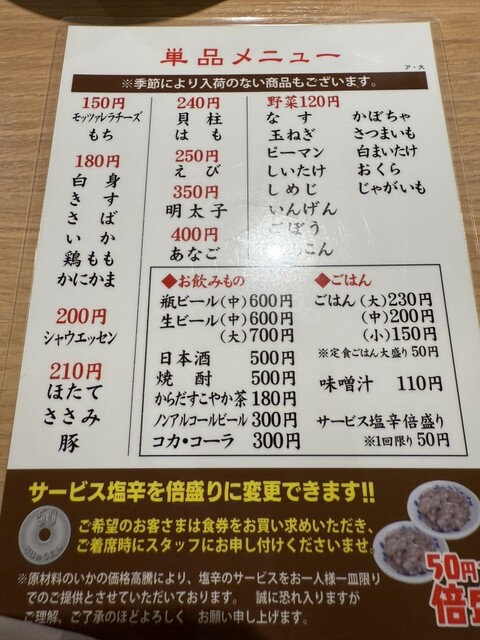 単品メニュー
ア・大
※季節により入荷のない商品もございます。
150円
モッツァレラチーズ
もち
180円
白身
きす
さば
いか
鶏もも
かにかま
200円
シャウエッセン
210円
ほたて
ささみ
豚
240円
貝柱
はも
250円
えび
350円
明太子
400円
あなご
野菜120円
なす
玉ねぎ
ピーマン
しいたけ
しめじ
いんげん
ごぼう
こん
かぼちゃ
さつまいも
白まいたけ
おくら
じゃがいも
◆お飲みもの
瓶ビール(中)600円
生ビール(中)600円
(大)700円
日本酒 500円
焼酎 500円
からだすこやか茶 180円
ノンアルコールビール 300円
コカ・コーラ 300円
◆ごはん
ごはん(大)230円
(中)200円
(小)150円
※定食ごはん大盛り50円
味噌汁 110円
サービス塩辛倍盛り
※1回限り50円
サービス塩辛を倍盛りに変更できます!!
50
ご希望のお客さまは食券をお買い求めいただき、
ご着席時にスタッフにお申し付けくださいませ。
※原材料のいかの価格高騰により、塩辛のサービスをお一人様一皿限り
でのご提供とさせていただいております。 誠に恐れ入りますが
ご理解、ご了承のほどよろしく お願い申し上げます。
50円
倍盛